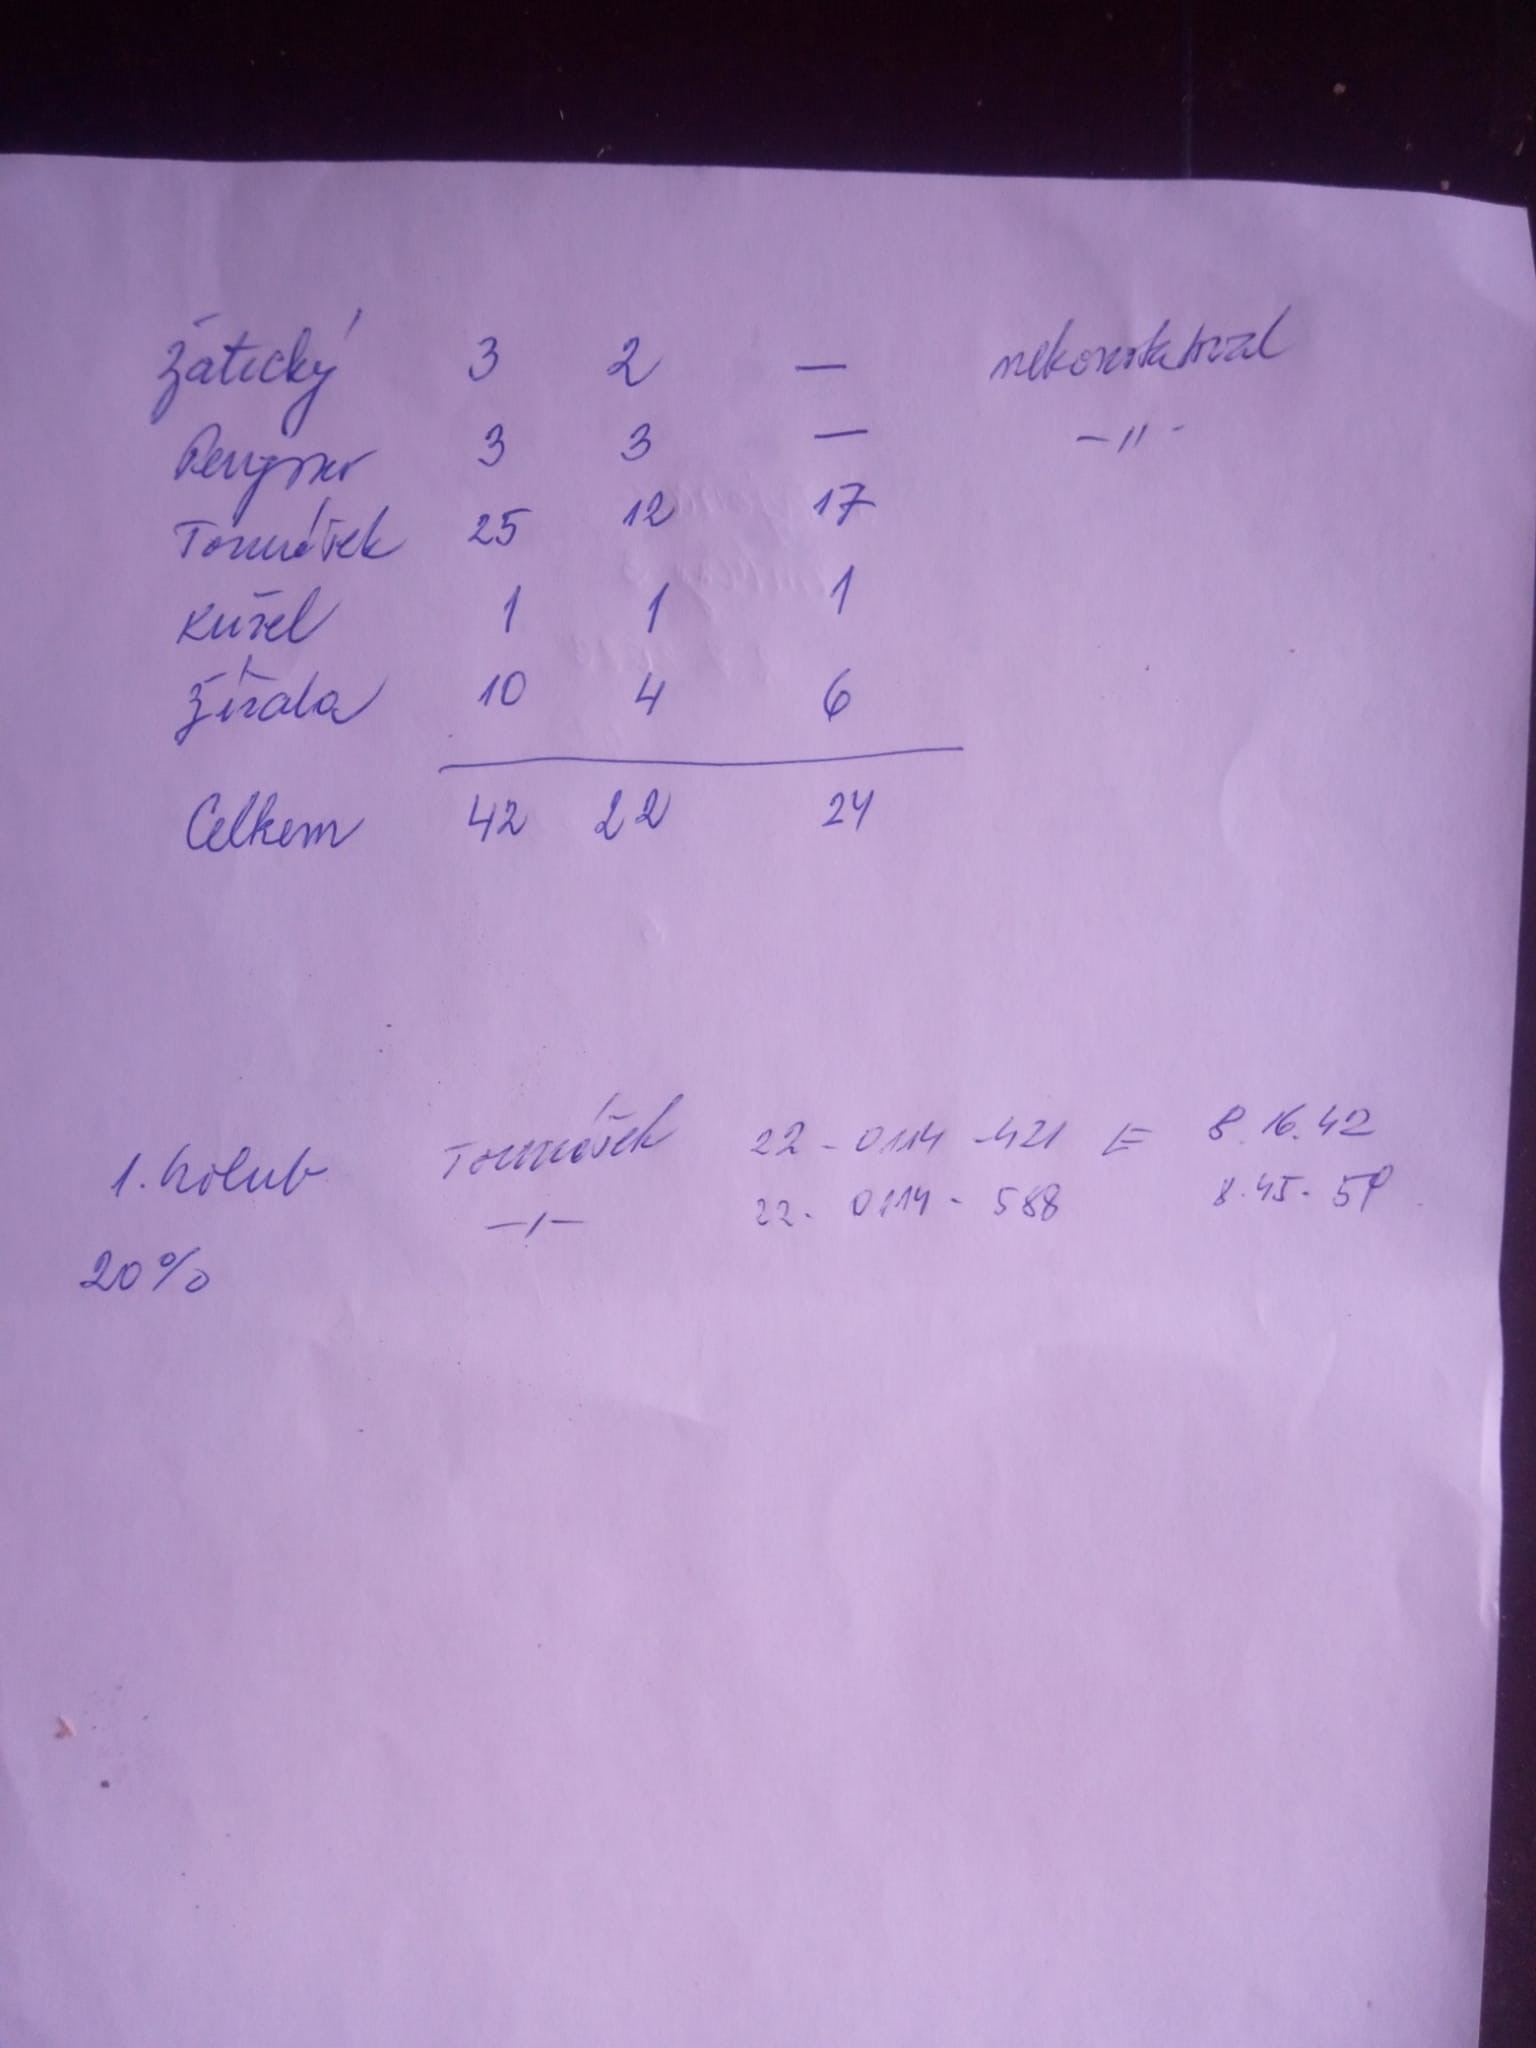 Žátecký 3 2 — nekonstatoval
3 3 — —〃-
Tomášek 25 12 17
Kužel 1 1 1
Žížala 10 4 6
Celkem 42 22 24
1. holub Tomášek 22-0114-421 = 8.16.42
20% —〃— 22-0114-588 8.45.59